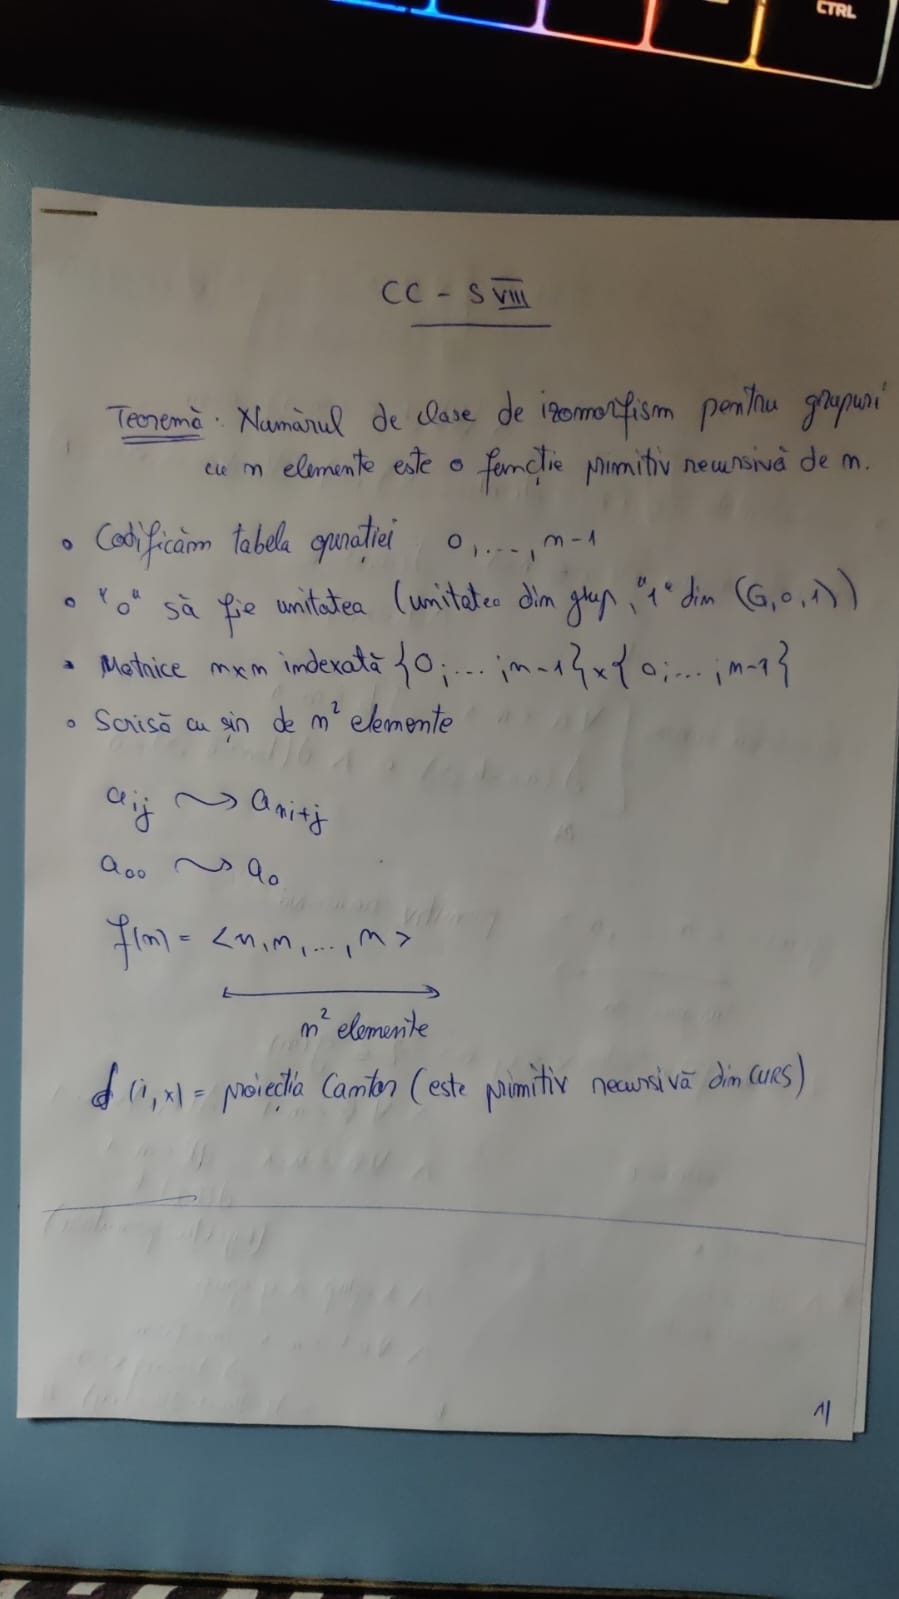 CTRL
CC - S VIII
Teoremă: Numărul de clase de izomorfism pentru grupuri
cu n elemente este o funcție primitiv recursivă de n.
• Codificăm tabela operației 0,...,n-1
• "0" să fie unitatea (unitatea din grup, "1" din (G,0,1))
• Matrice nxn indexată {0;...;n-1}x{0;...;n-1}
• Scrisă ca șir de n² elemente
aij ⤳ ani+j
a00 ⤳ a0
f(n) = <n,n,...,n>
n² elemente
d(i,x) = proiecția Cantor (este primitiv recursivă din CURS)
1/